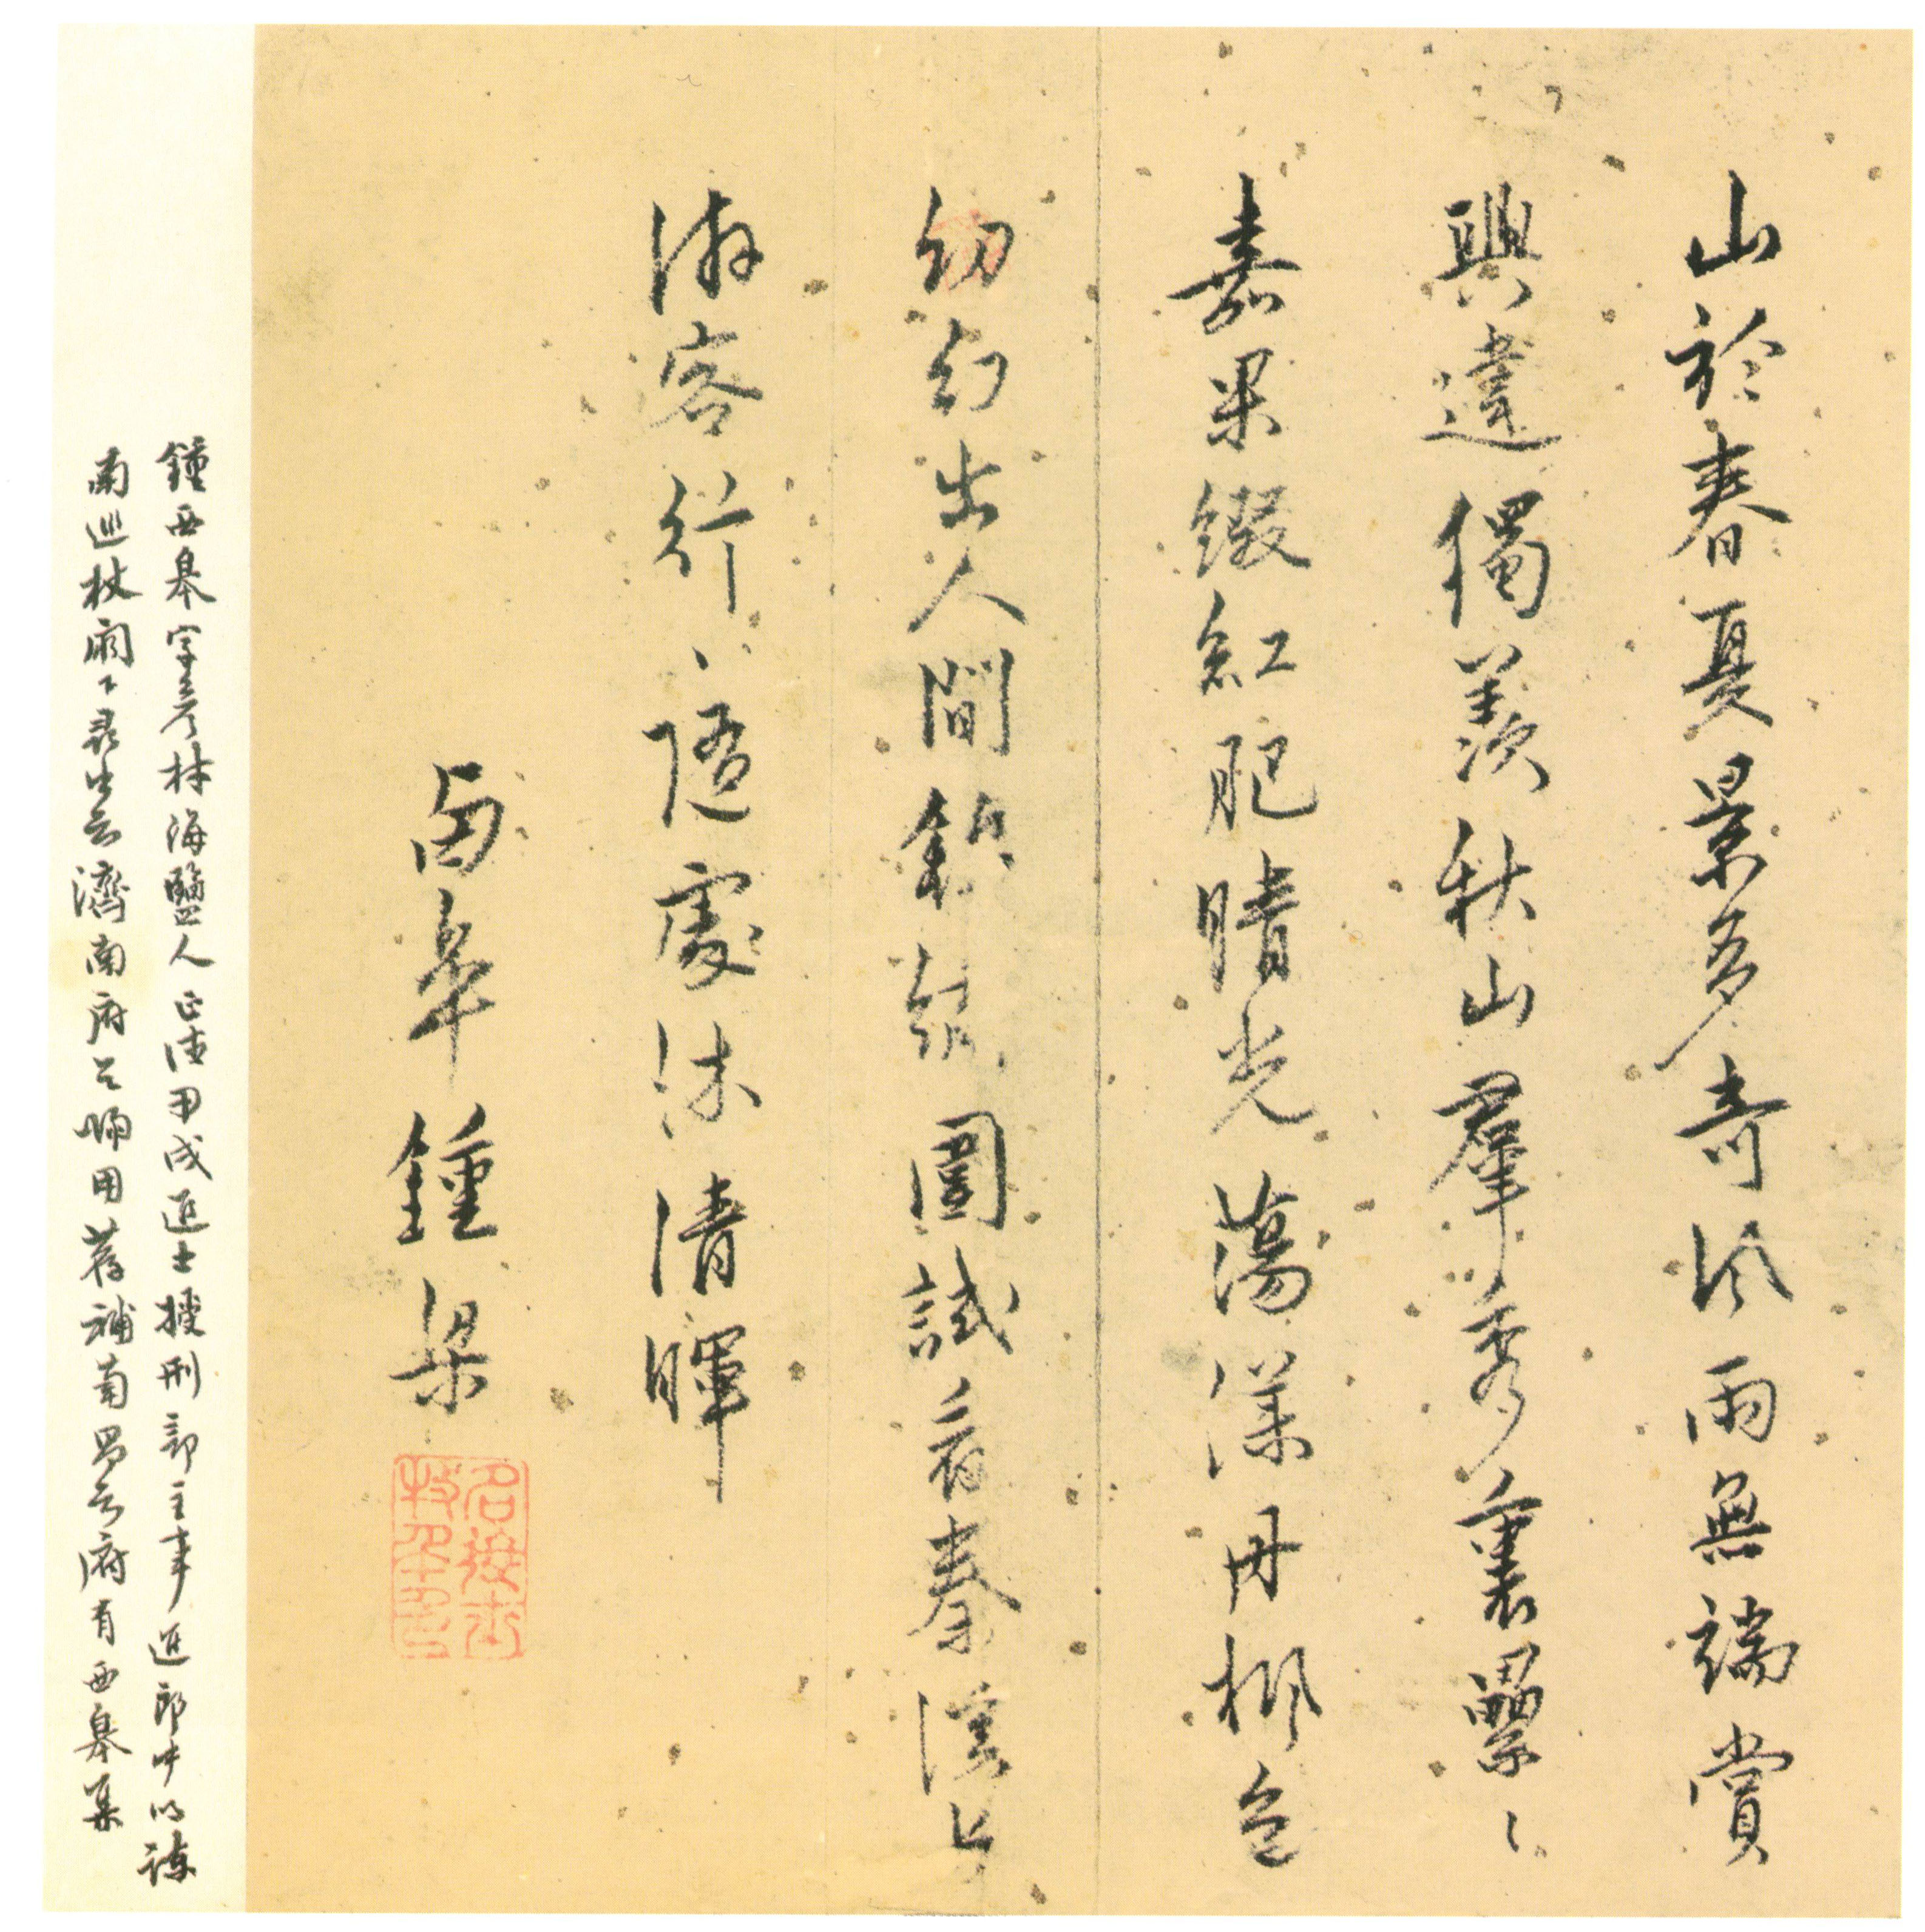 山於春夏景多奇風雨無端賞
興違獨羨秋山羣秀叢纍〻
嘉果綴紅肥晴光蕩漾丹楓色
幼幻出人間錦繡圍試看秦溪与
游客行〻隨處沐清暉
西皋鍾梁
鍾西皋字彥材海鹽人正德甲戌進士授刑部主事進郎中以諫
南巡杖闕下尋出知濟南府用荐補南昌知府有西皋集